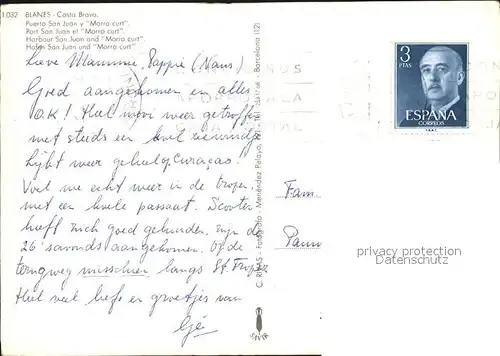 1.032 BLANES - Costa Brava.
Puerto San Juan y "Morro curt".
Port San Juan et "Morro curt".
Harbour San Juan and "Morro curt".
Hafen San Juan und "Morro curt".
Lieve Mammie, Pappie (Nans)
Goed aangekomen en alles
O.K! Heel mooi weer getroffen
met steeds een koel windje
Lijkt weer geheel op Curaçao.
Voel me echt weer in de tropen,
met een koele passaat. Scooter
heeft zich goed gehouden. Zijn de
26 's avonds aangekomen. Op de
terugweg misschien langs St. Tropez
Heel veel liefs en groetjes van
Gé
Fam.
Pann
3
PTAS
ESPAÑA
CORREOS
privacy protection
Datenschutz